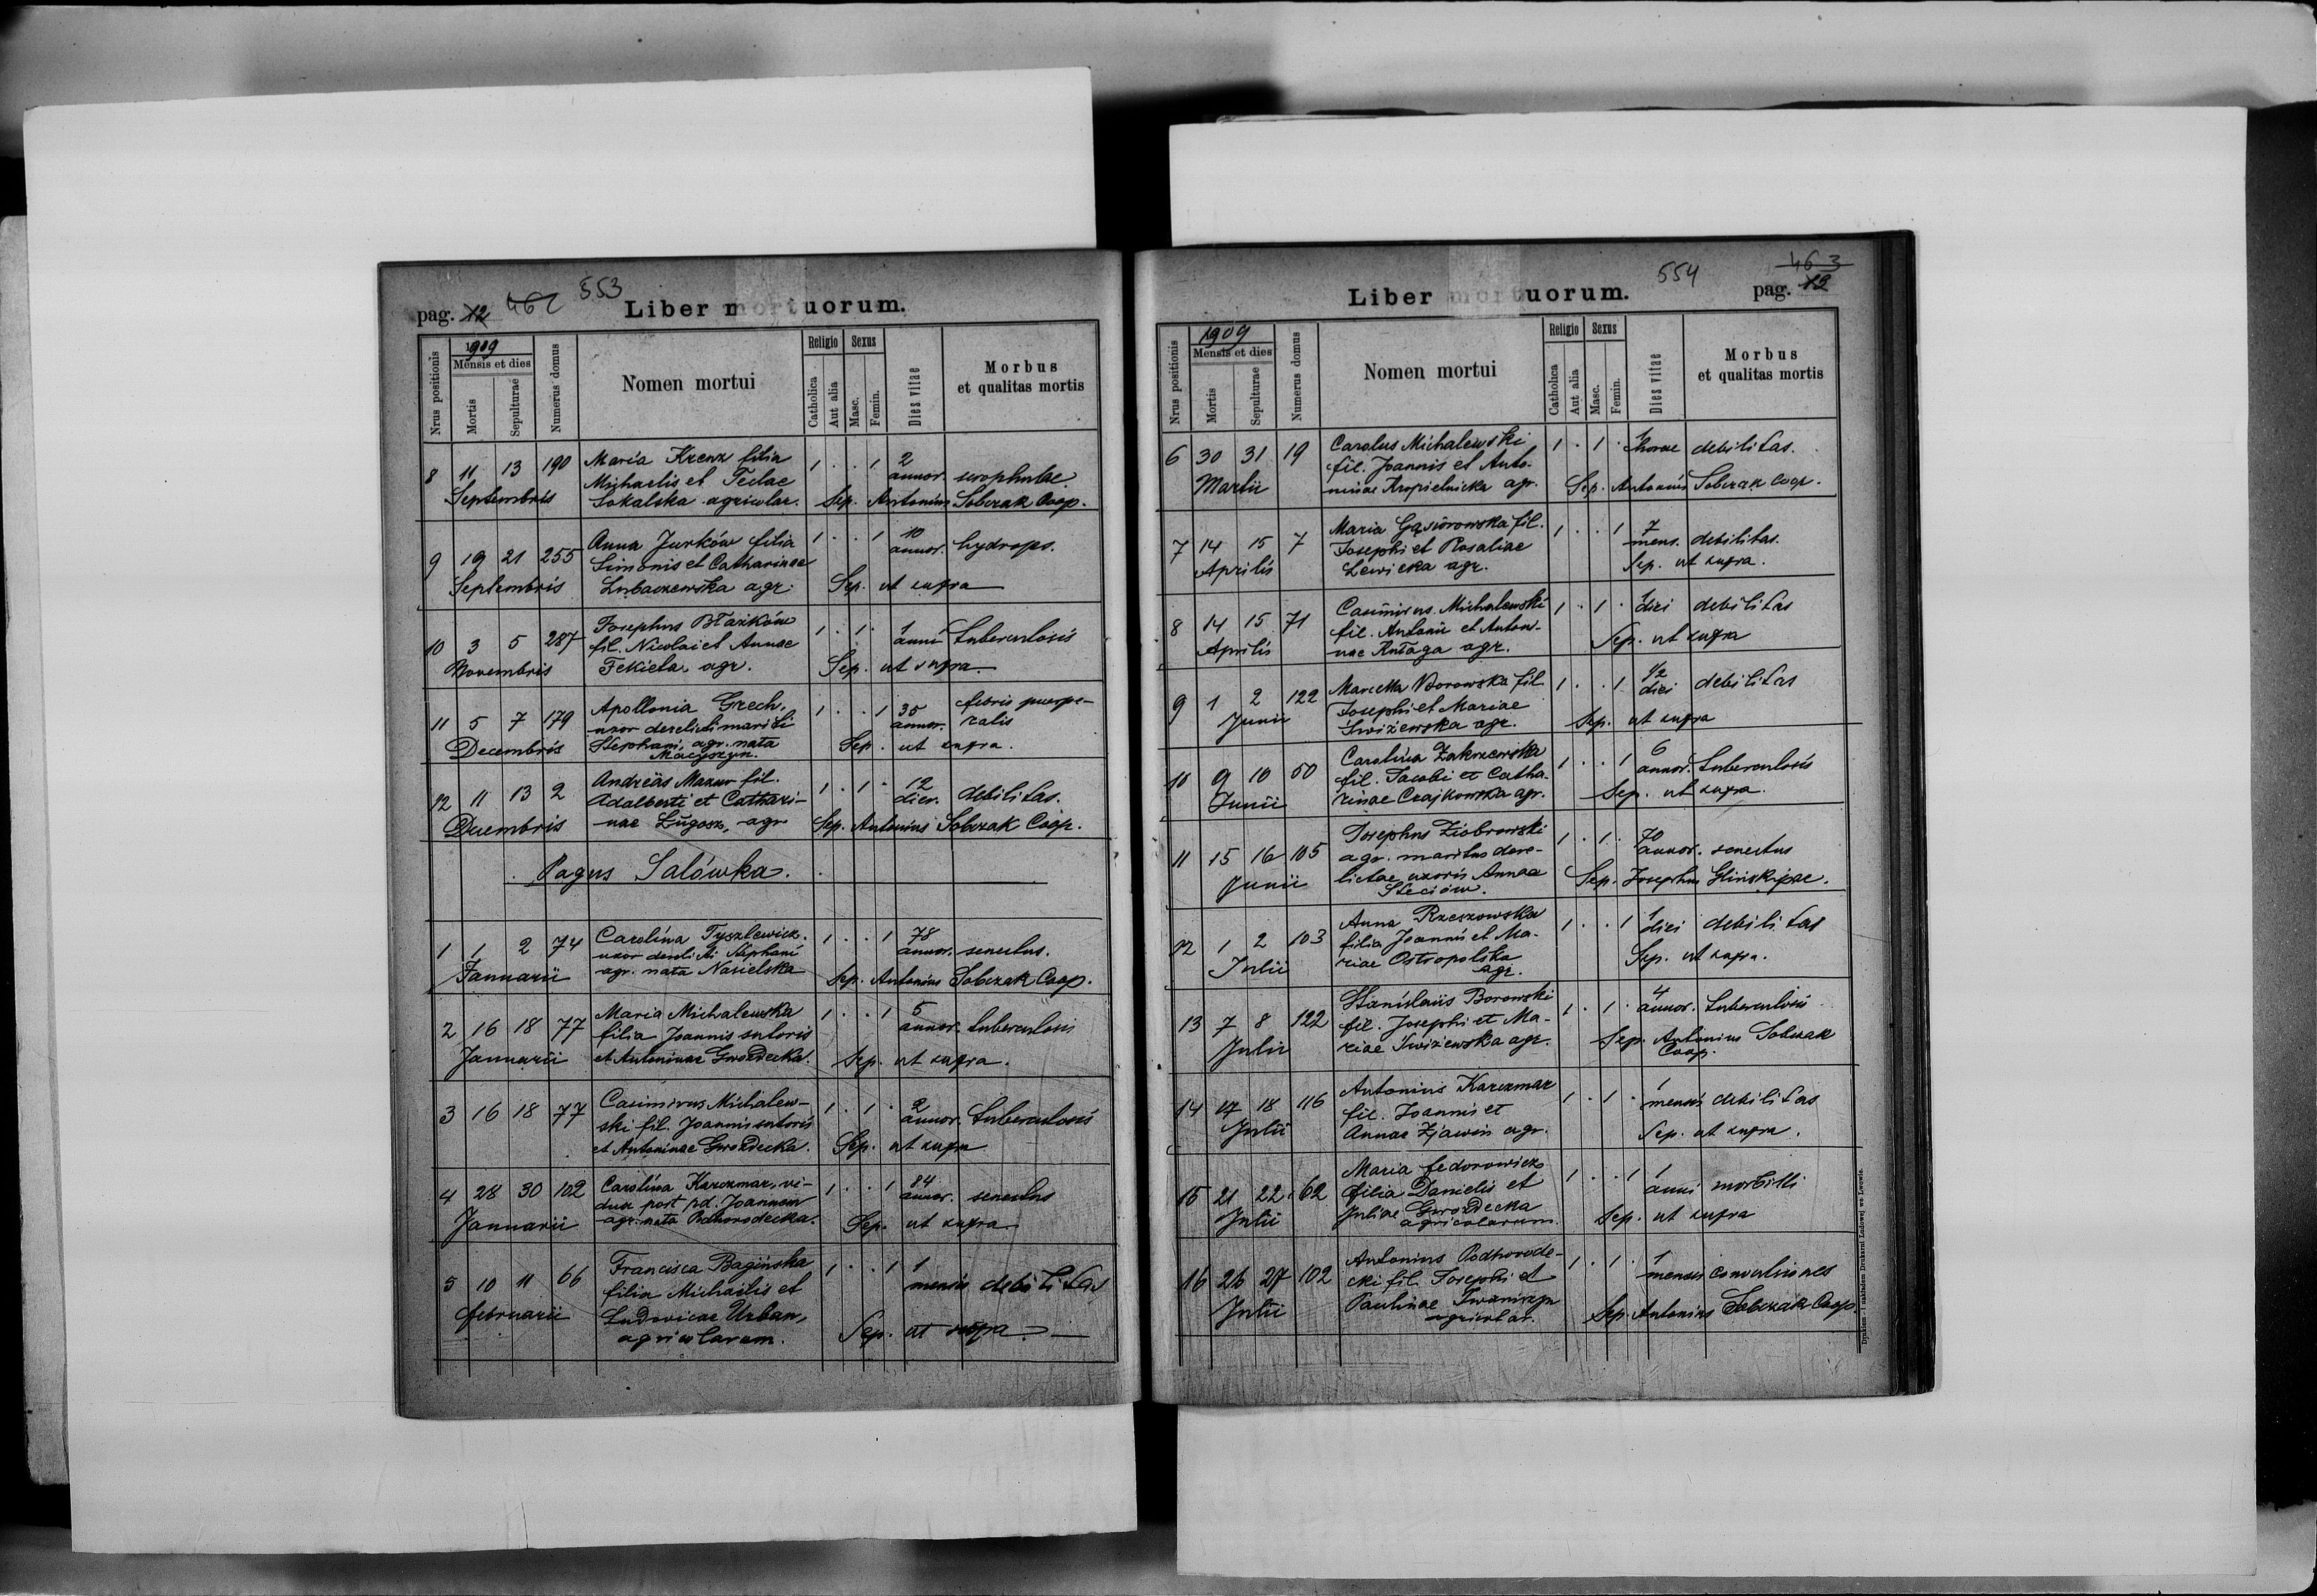 pag. 12 462 553 Liber mortuorum.
Nrus positionis
1909
Mensis et dies
Mortis
Sepulturae
Numerus domus
Nomen mortui
Religio
Catholica
Aut alia
Sexus
Masc.
Femin.
Dies vitae
Morbus
et qualitas mortis
8 11 13 190 Maria Krenz filia 1 . . 1 2
Michaelis et Teclae annor. scrophulae.
Septembris Sokalska agricolar. Sep. Antonius Sobczak Coop.
9 19 21 255 Anna Jurków filia 1 . . 1 10
Simonis et Catharinae annor. hydrops.
Septembris Lubaczewska agr. Sep. ut supra
10 3 5 287 Josephus Błażków 1 . 1 . 1
fil. Nicolai et Annae anni tuberculosis
Novembris Fekieta agr. Sep. ut supra
11 5 7 179 Apollonia Grech, 1 . . 1 35 febris puerpe-
uxor derelicti mariti annor. ralis
Decembris Stephani, agr. nata Sep. ut supra.
Maćyszyn.
12 11 13 2 Andreas Mazur fil. 1 . 1 . 12
Adalberti et Cathari- dier. debilitas.
Decembris nae Ługosz, agr Sep. Antonius Sobczak Coop.
Pagus Salówka.
1 1 2 74 Carolina Tyszkewicz. 1 . . 1 78
uxor derelicti Stephani annor. senectus.
Januarii agr. nata Nasielska Sep. Antonius Sobczak Coop.
2 16 18 77 Maria Michalewska 1 . . 1 5
filia Joannis sutoris annor. tuberculosis
Januarii et Antoninae Gwozdecka. Sep. ut supra.
3 16 18 77 Casimirus Michalew- 1 . 1 . 2
ski fil. Joannis sutoris annor. tuberculosis
et Antoninae Gwozdecka. Sep. ut supra
4 28 30 102 Carolina Karczmar, vi- 1 . . 1 84
dua post pd. Joannem annor. senectus
Januarii agr. nata Podhorodecka. Sep. ut supra
5 10 11 66 Francisca Bagińska 1 . . 1 1
filia Michaelis et mensis debilitas
februarii Ludovicae Urban,
agricolarum. Sep. ut supra
Liber mortuorum. 554 463 pag. 12
Nrus positionis
1909
Mensis et dies
Mortis
Sepulturae
Numerus domus
Nomen mortui
Religio
Catholica
Aut alia
Sexus
Masc.
Femin.
Dies vitae
Morbus
et qualitas mortis
6 30 31 19 Carolus Michalewski 1 . 1 . 1
fil. Joannis et Anto- horae debilitas.
Martii ninae Kropielnicka agr. Sep. Antonius Sobczak Coop.
7 14 15 7 Maria Gąsiorowska fil. 1 . . 1 7
Josephi et Rosaliae mens. debilitas.
Aprilis Lewicka agr. Sep. ut supra.
8 14 15 71 Casimirus Michalewski 1 . 1 . 1
fil. Antonii et Anton- diei debilitas
Aprilis nae Rułaga agr. Sep. ut supra
9 1 2 122 Marcella Borowska fil. 1 . . 1 1/2
Josephi et Mariae diei debilitas
Junii Iwiżewska agr. Sep. ut supra
10 9 10 50 Carolina Zakrzewska 1 . . 1 6
fil. Jacobi et Catha- annor. tuberculosis
Junii rinae Czajkowska agr. Sep. ut supra.
11 15 16 105 Josephus Ziobrowski 1 . 1 . 70
agr. maritus dere- annor. senectus
Junii lictae uxoris Annae Sep. Josephus
Steciów.
12 1 2 103 Anna Rzeszowska 1 . . 1 1
filia Joannis et Ma- diei debilitas
Julii riae Ostropolska Sep. ut supra.
agr.
13 7 8 122 Stanislaus Borowski 1 . 1 . 4
fil. Josephi et Ma- annor. tuberculosis
Julii riae Iwiżewska agr. Sep. Antonius Sobczak
Coop.
14 17 18 116 Antonius Karczmar 1 . 1 . 1
fil. Joannis et mensis debilitas
Julii Annae Zjawin agr. Sep. ut supra.
15 21 22 62 Maria Fedorowicz 1 . . 1 1
filia Danielis et anni morbilli
Julii Juliae Gwozdecka Sep. ut supra
agricolarum.
16 26 27 102 Antonius Podhorode- 1 . 1 . 1
cki fil. Josephi et mensis convulsiones
Julii Paulinae Iwaniszyn Sep. Antonius Sobczak Coop.
agricolar.
Drukiem i nakładem Drukarni Ludowej we Lwowie.